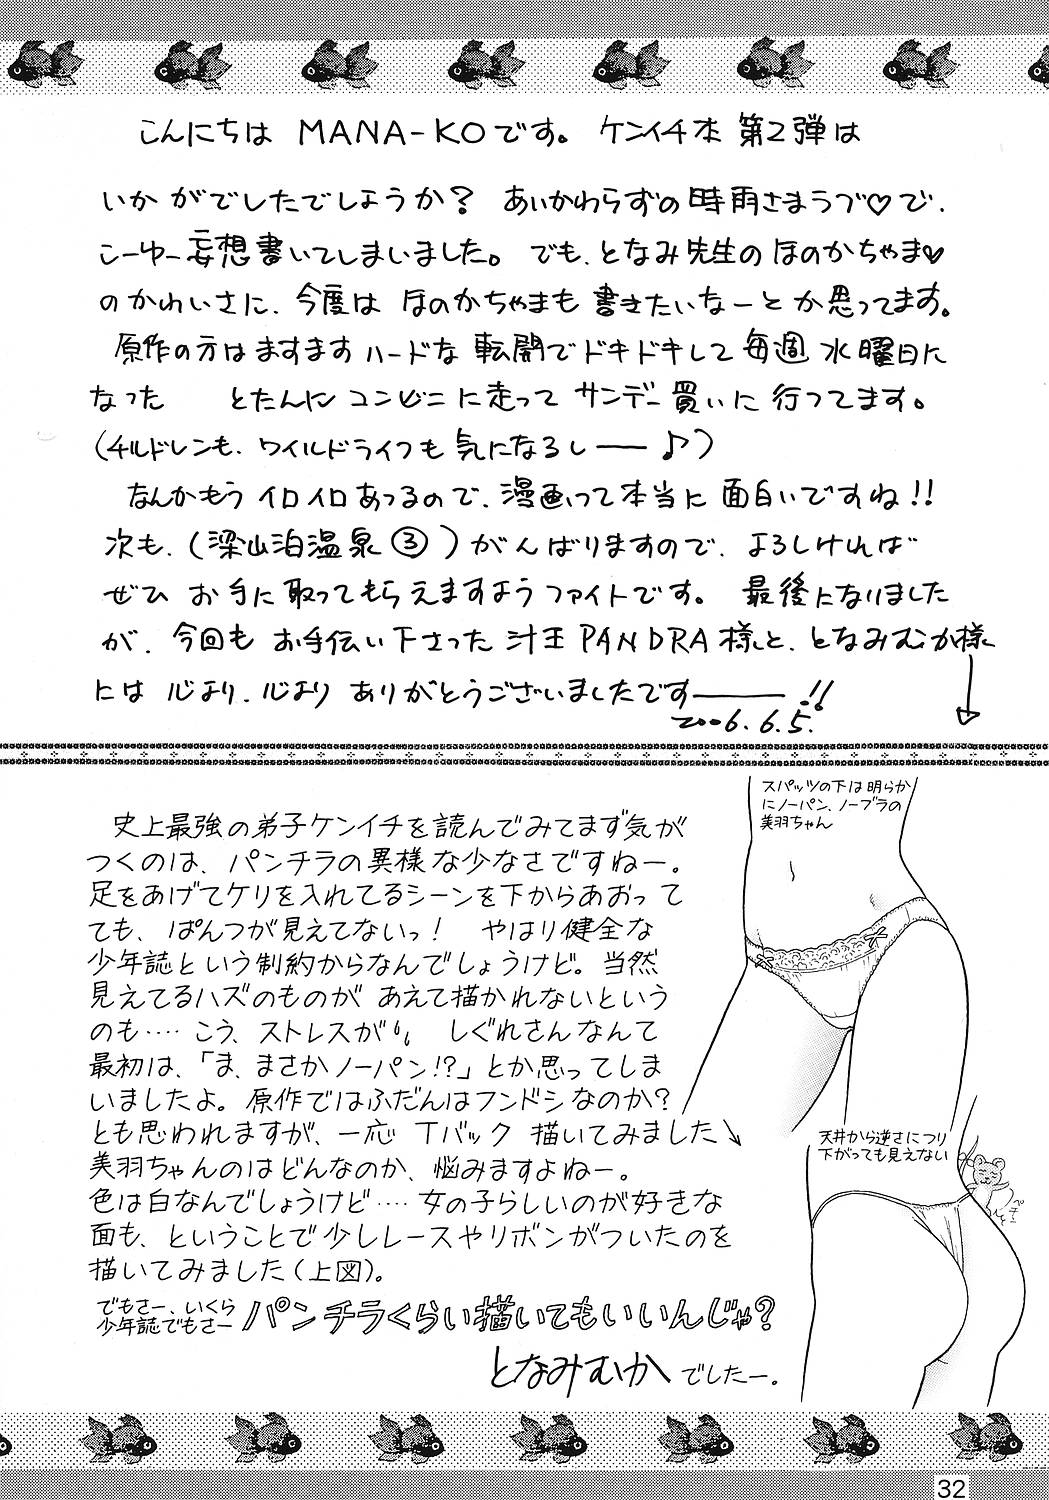 こんにちは MANA-KOです。 ケンイチ本 第2弾は
いかがでしたでしょうか? あいかわらずの時雨さまラブ♡で、
こーゆー妄想書いてしまいました。 でも、となみ先生のほのかちゃま♡
のかわいさに、今度は ほのかちゃまも 書きたいなーとか思ってます。
原作の方はますますハードな 転開でドキドキして毎週 水曜日に
なった とたんに コンビニに走って サンデー買いに行ってます。
(チルドレンも、ワイルドライフも気になるし――♪)
なんかもう イロイロあつるので、漫画って本当に 面白いですね!!
次も、(梁山泊温泉③)がんばりますので、よろしければ
ぜひ お手に取ってもらえますようファイトです。 最後になりました
が、今回も お手伝い下さった 汁王PANDRA様と、となみむか様
には 心より、心より ありがとうございましたです――!!
2006.6.5.
史上最強の弟子ケンイチを読んでみてまず気が
つくのは、パンチラの異様な少なさですねー。
足をあげてケリを入れてるシーンを下からあおって
ても、ぱんつが見えてないっ! やはり健全な
少年誌という制約からなんでしょうけど。当然
見えてるハズのものが あえて描かれないという
のも‥‥こう、ストレスが しぐれさんなんて
最初は、「ま、まさかノーパン!?」とか思ってしま
いましたよ。原作ではふだんはフンドシなのか?
とも思われますが、一応 Tバック 描いてみました↘
美羽ちゃんのはどんなのか、悩みますよねー。
色は白なんでしょうけど‥‥女の子らしいのが好きな
面も、ということで少しレースやリボンがついたのを
描いてみました(上図)。
でもさー、いくら
少年誌でもさー パンチラくらい描いてもいいんじゃ?
となみむか でしたー。
スパッツの下は明らか
にノーパン、ノーブラの
美羽ちゃん
天井から逆さにつり
下がっても見えない
ペチ
32